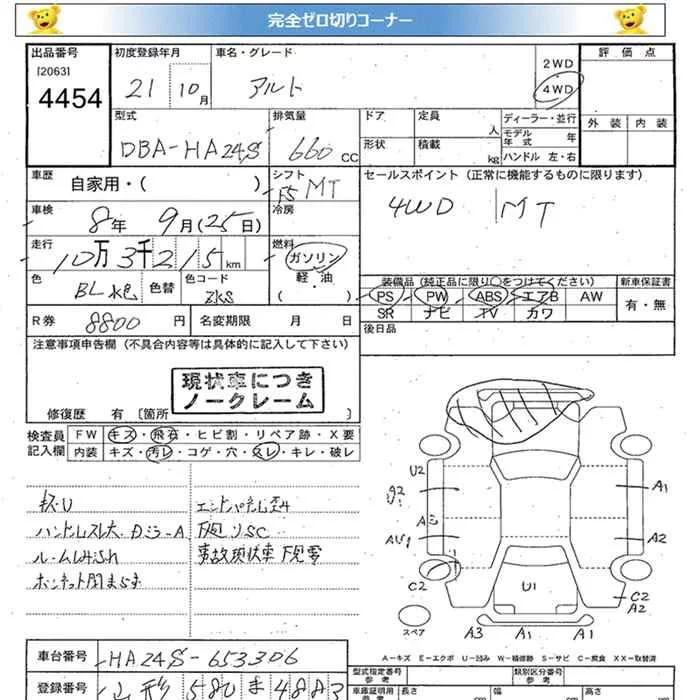 完全ゼロ切りコーナー
出品番号
[2063]
4454
初度登録年月
21 10月
車名・グレード
アルト
2WD
4WD
評価点
外装 内装
型式
DBA-HA24S
排気量
660 CC
ドア
形状
定員 人
積載 kg
ディーラー・並行
モデル年式 年
ハンドル 左・右
車歴
自家用・( )
シフト
F5 MT
セールスポイント (正常に機能するものに限ります)
4WD MT
車検
8年 9月(25日)
冷房
走行
10万3千215km
燃料
ガソリン
軽・油
( )
色
BL水色
色替
色コード
ZKS
装備品(純正品に限り○をつけてください)
PS PW ABS エアB AW
SR ナビ TV カワ
新車保証書
有・無
R券 8800円
名変期限 月 日
後日品
注意事項申告欄 (不具合内容等は具体的に記入して下さい)
現状車につき
ノークレーム
修復歴 有 [箇所 ]
検査員
記入欄
FW キズ・飛石・ヒビ割・リペア跡・X要
内装 キズ・汚レ・コゲ・穴・スレ・キレ・破レ
キズ・U
ルームしみ汚れ
エンドパネル歪み
下廻りSC
事故現状車 下見要
U2
A2
U2
A1
A
AU1
A2
C2
U1
C2
A2
スペア
A3 A1 A1
A-キズ E-エクボ U-凹み W-補修跡 S-サビ C-腐食 XX-取替済
車台番号
HA24S-653306
登録番号
山形 580 ま 4883
型式指定番号
参考
類別区分番号
参考
車庫証明用
長さ cm
幅 cm
高さ